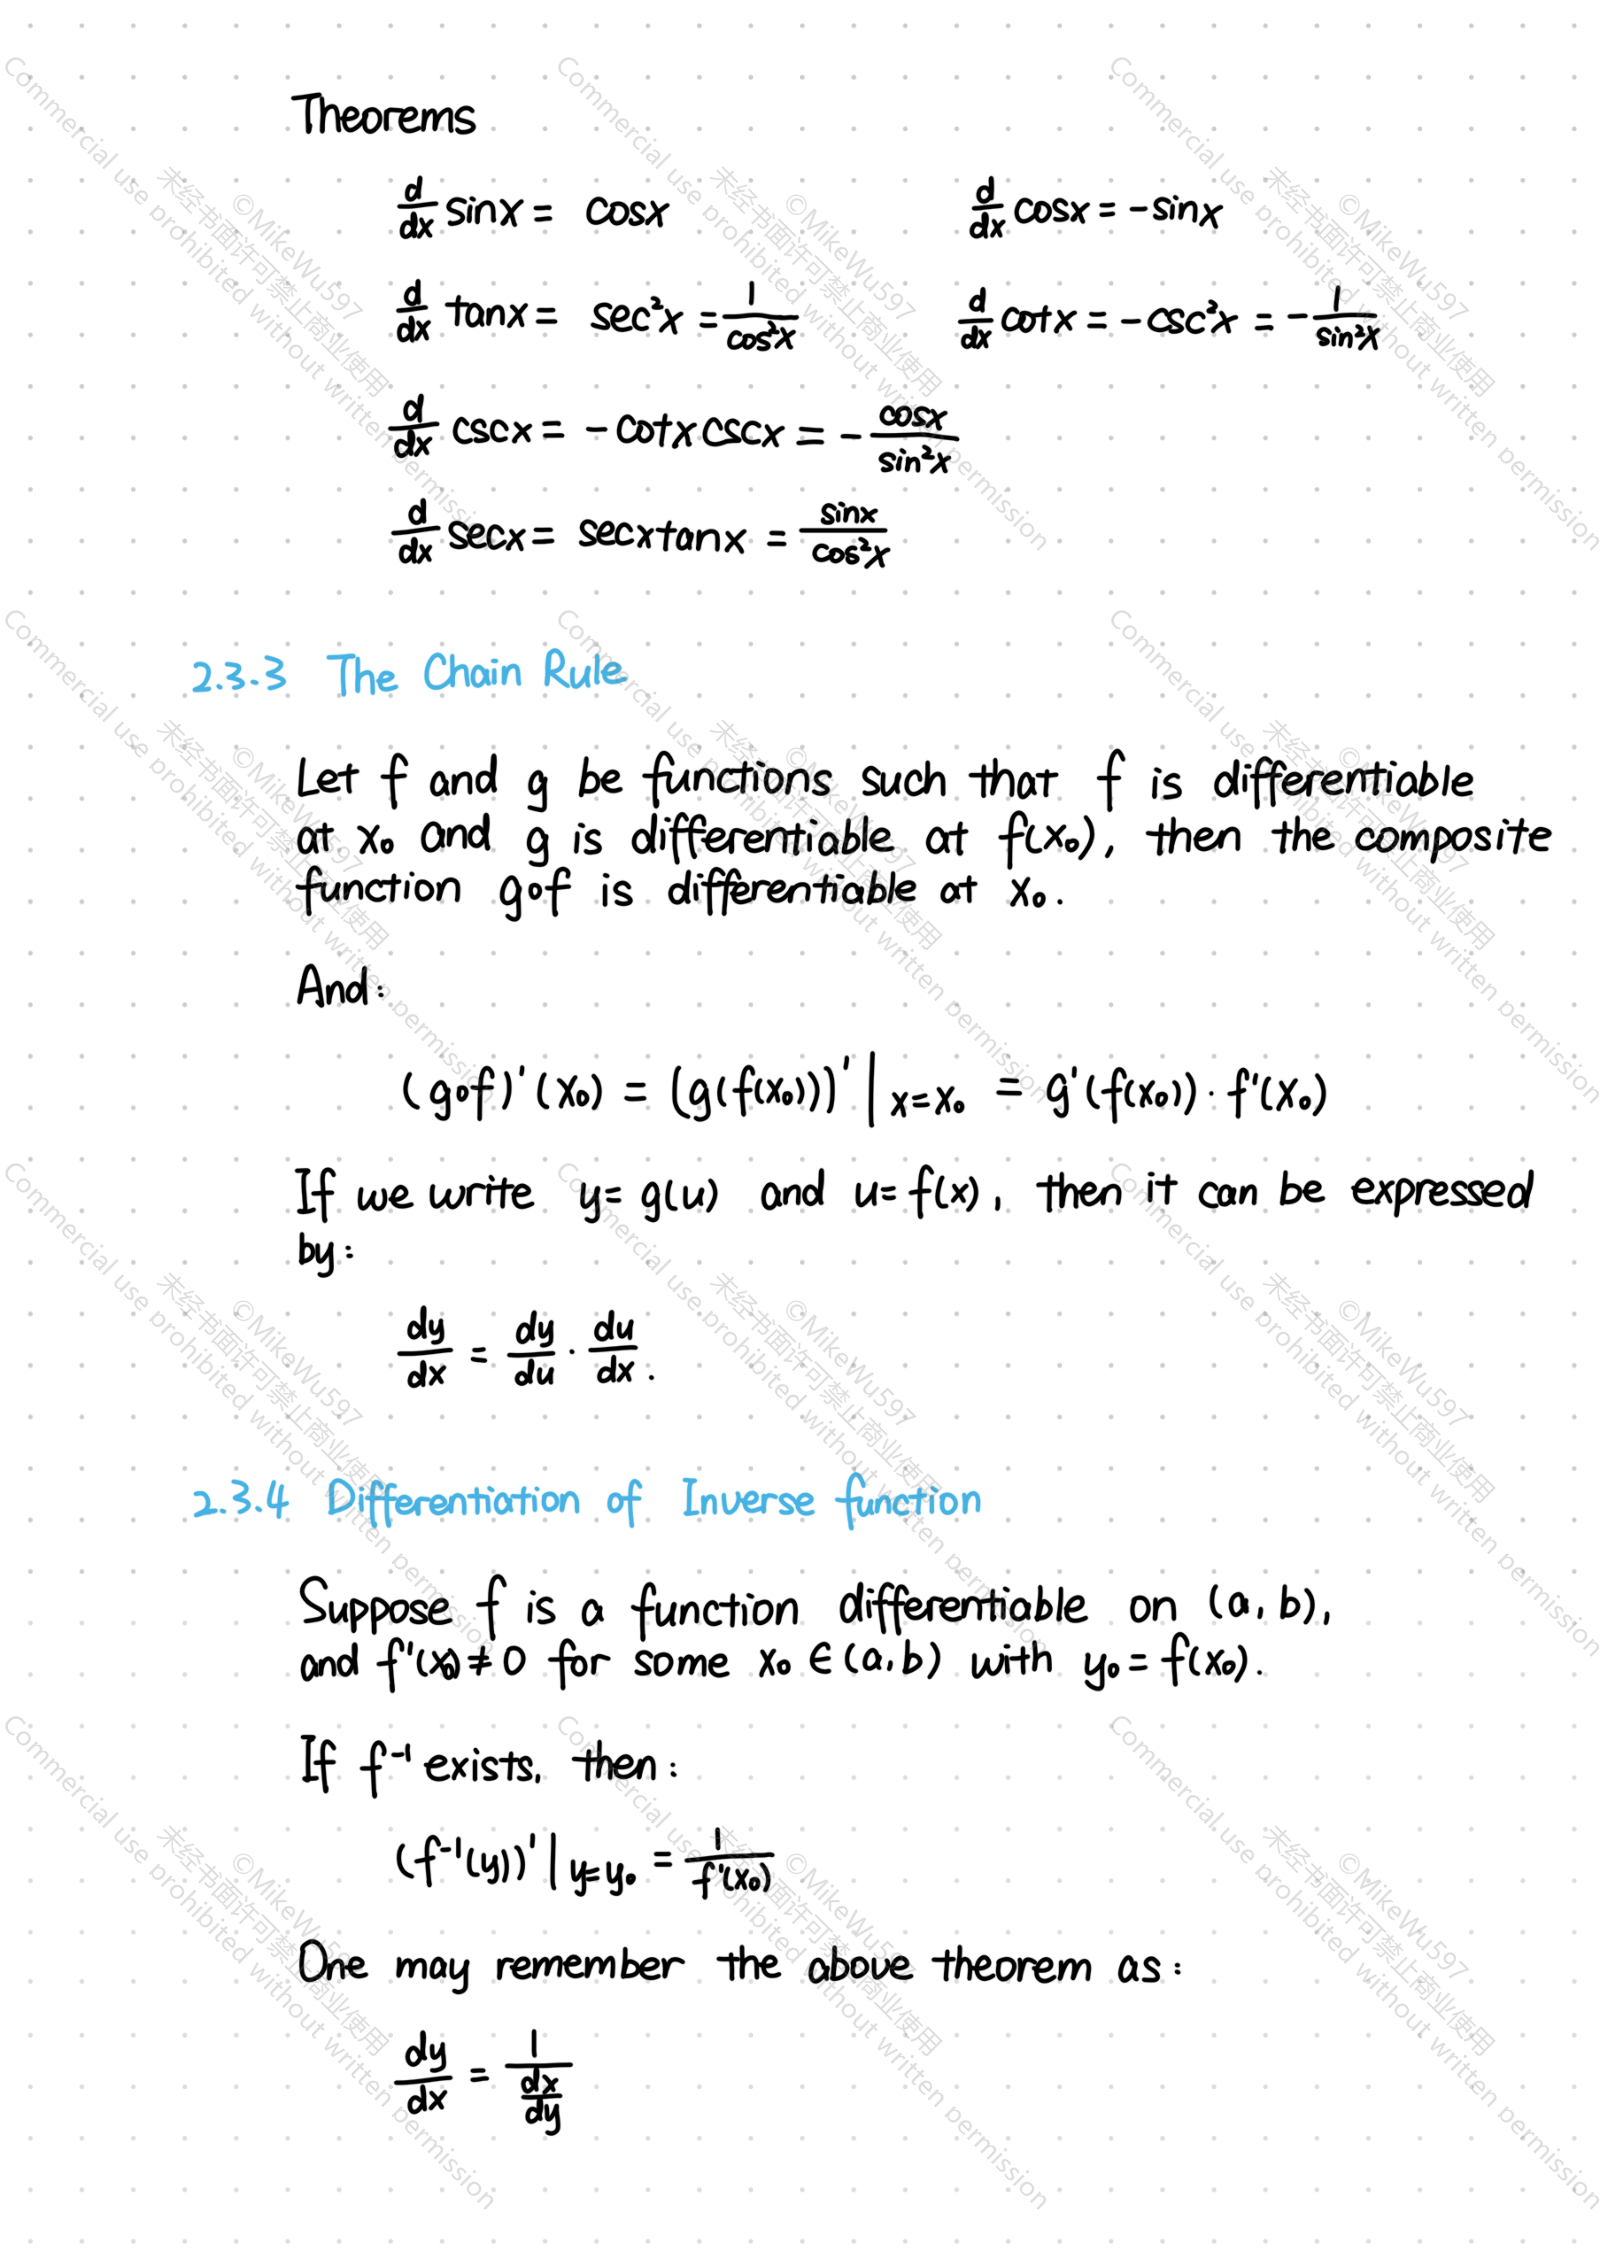 Theorems
d/dx sinx = cosx    d/dx cosx = -sinx
d/dx tanx = sec²x = 1/cos²x    d/dx cotx = -csc²x = -1/sin²x
d/dx cscx = -cotxcscx = -cosx/sin²x
d/dx secx = secxtanx = sinx/cos²x
2.3.3 The Chain Rule
Let f and g be functions such that f is differentiable
at x₀ and g is differentiable at f(x₀), then the composite
function g∘f is differentiable at x₀.
And:
(g∘f)'(x₀) = (g(f(x₀)))'|x=x₀ = g'(f(x₀))·f'(x₀)
If we write y=g(u) and u=f(x), then it can be expressed
by:
dy/dx = dy/du · du/dx.
2.3.4 Differentiation of Inverse function
Suppose f is a function differentiable on (a,b),
and f'(x₀)≠0 for some x₀∈(a,b) with y₀=f(x₀).
If f⁻¹ exists, then:
(f⁻¹(y))'|y=y₀ = 1/f'(x₀)
One may remember the above theorem as:
dy/dx = 1/(dx/dy)
©MikeWu597
未经书面许可禁止商业使用
Commercial use prohibited without written permission